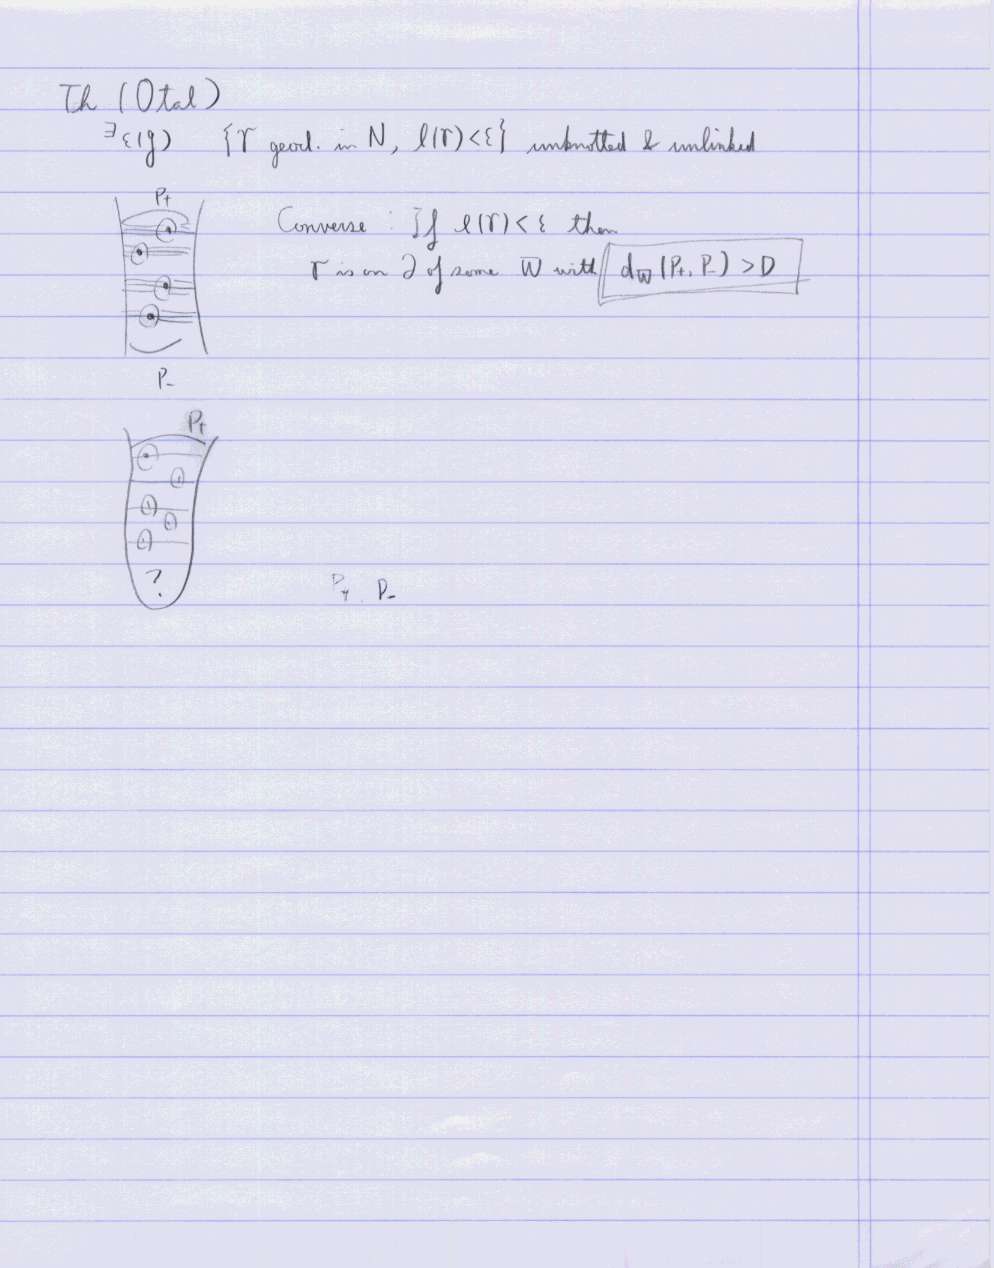 Th (Otal)
∃ε(g) {γ geod. in N, l(γ)<ε} unknotted & unlinked
P+
Converse : If l(γ)<ε then
γ is on ∂ of some W with d_W(P+, P-) >D
P-
P+
?
P+, P-